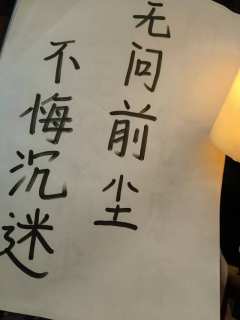 无问前尘
不悔沉迷